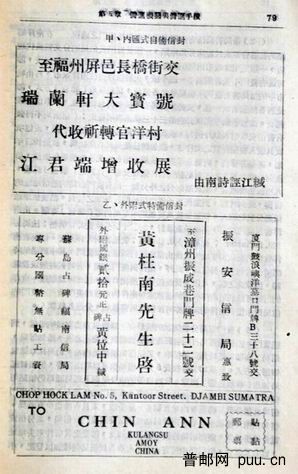 79
甲、內區式自衞信封
至福州屏邑長橋街交
瑞蘭軒大寶號
代收祈轉官洋村
江君端增收展
由南詩誙江緘
乙、外附式特衞信封
廈門鼓浪嶼洋墓口門牌B三十八號交
振安信局
至漳州振成巷門牌二十二號交
黃桂南先生啓
外附國銀貳拾元正
占碑黃位中緘
蘇島占碑福南信局
CHOP HOCK LAM No. 5, Kantoor Street. DJAMBI SUMATRA
TO
CHIN ANN
KULANGSU
AMOY
CHINA
普邮网 puu.cn